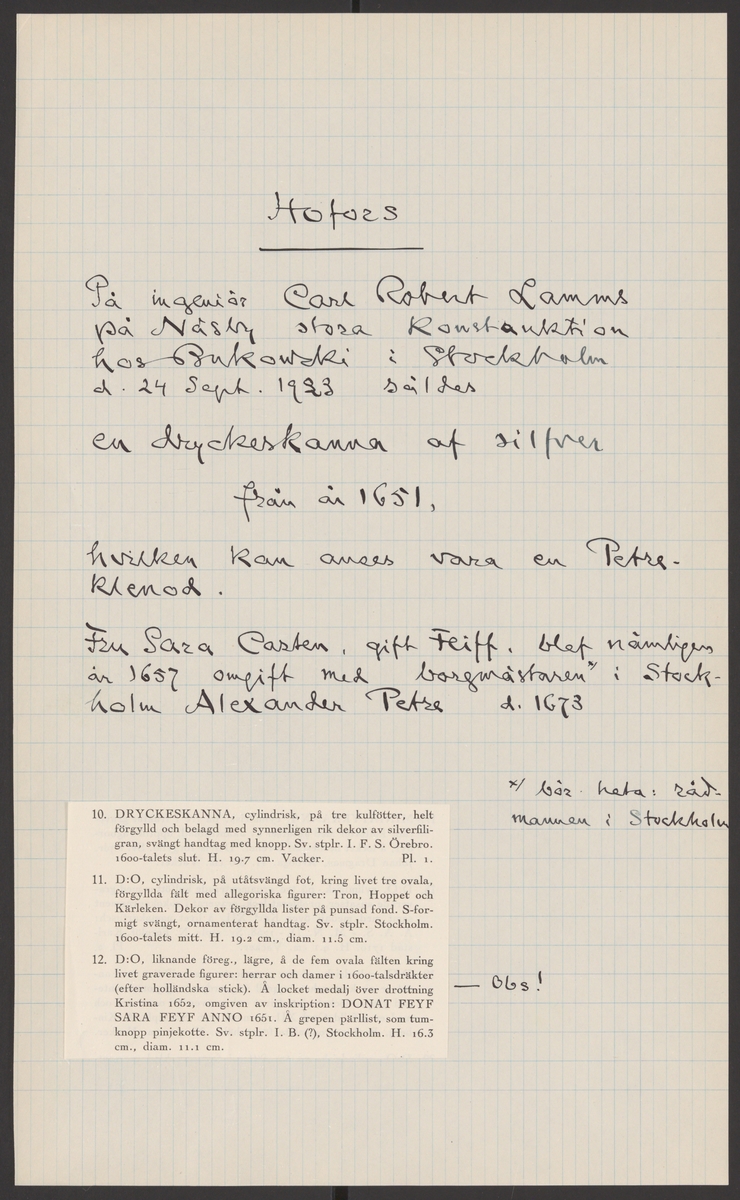 Hofors
På ingeniör Carl Robert Lamms
på Näsby stora Konstauktion
hos Bukowski i Stockholm
d. 24 Sept. 1923 såldes
en dryckeskanna af silfver
från år 1651,
hvilken kan anses vara en Petre-
klenod.
Fru Sara Carsten, gift Feiff, blef nämligen
år 1657 omgift med borgmästaren x/ i Stock-
holm Alexander Petre d. 1673
x/ bör heta: råd-
mannen i Stockholm
10. DRYCKESKANNA, cylindrisk, på tre kulfötter, helt
förgylld och belagd med synnerligen rik dekor av silverfili-
gran, svängt handtag med knopp. Sv. stplr. I. F. S. Örebro.
1600-talets slut. H. 19.7 cm. Vacker. Pl. 1.
11. D:O, cylindrisk, på utåtsvängd fot, kring livet tre ovala,
förgyllda fält med allegoriska figurer: Tron, Hoppet och
Kärleken. Dekor av förgyllda lister på punsad fond. S-for-
migt svängt, ornamenterat handtag. Sv. stplr. Stockholm.
1600-talets mitt. H. 19.2 cm., diam. 11.5 cm.
12. D:O, liknande föreg., lägre, å de fem ovala fälten kring
livet graverade figurer: herrar och damer i 1600-talsdräkter
(efter holländska stick). Å locket medalj över drottning
Kristina 1652, omgiven av inskription: DONAT FEYF
SARA FEYF ANNO 1651. Å grepen pärllist, som tum-
knopp pinjekotte. Sv. stplr. I. B. (?), Stockholm. H. 16.3
cm., diam. 11.1 cm.
— Obs!